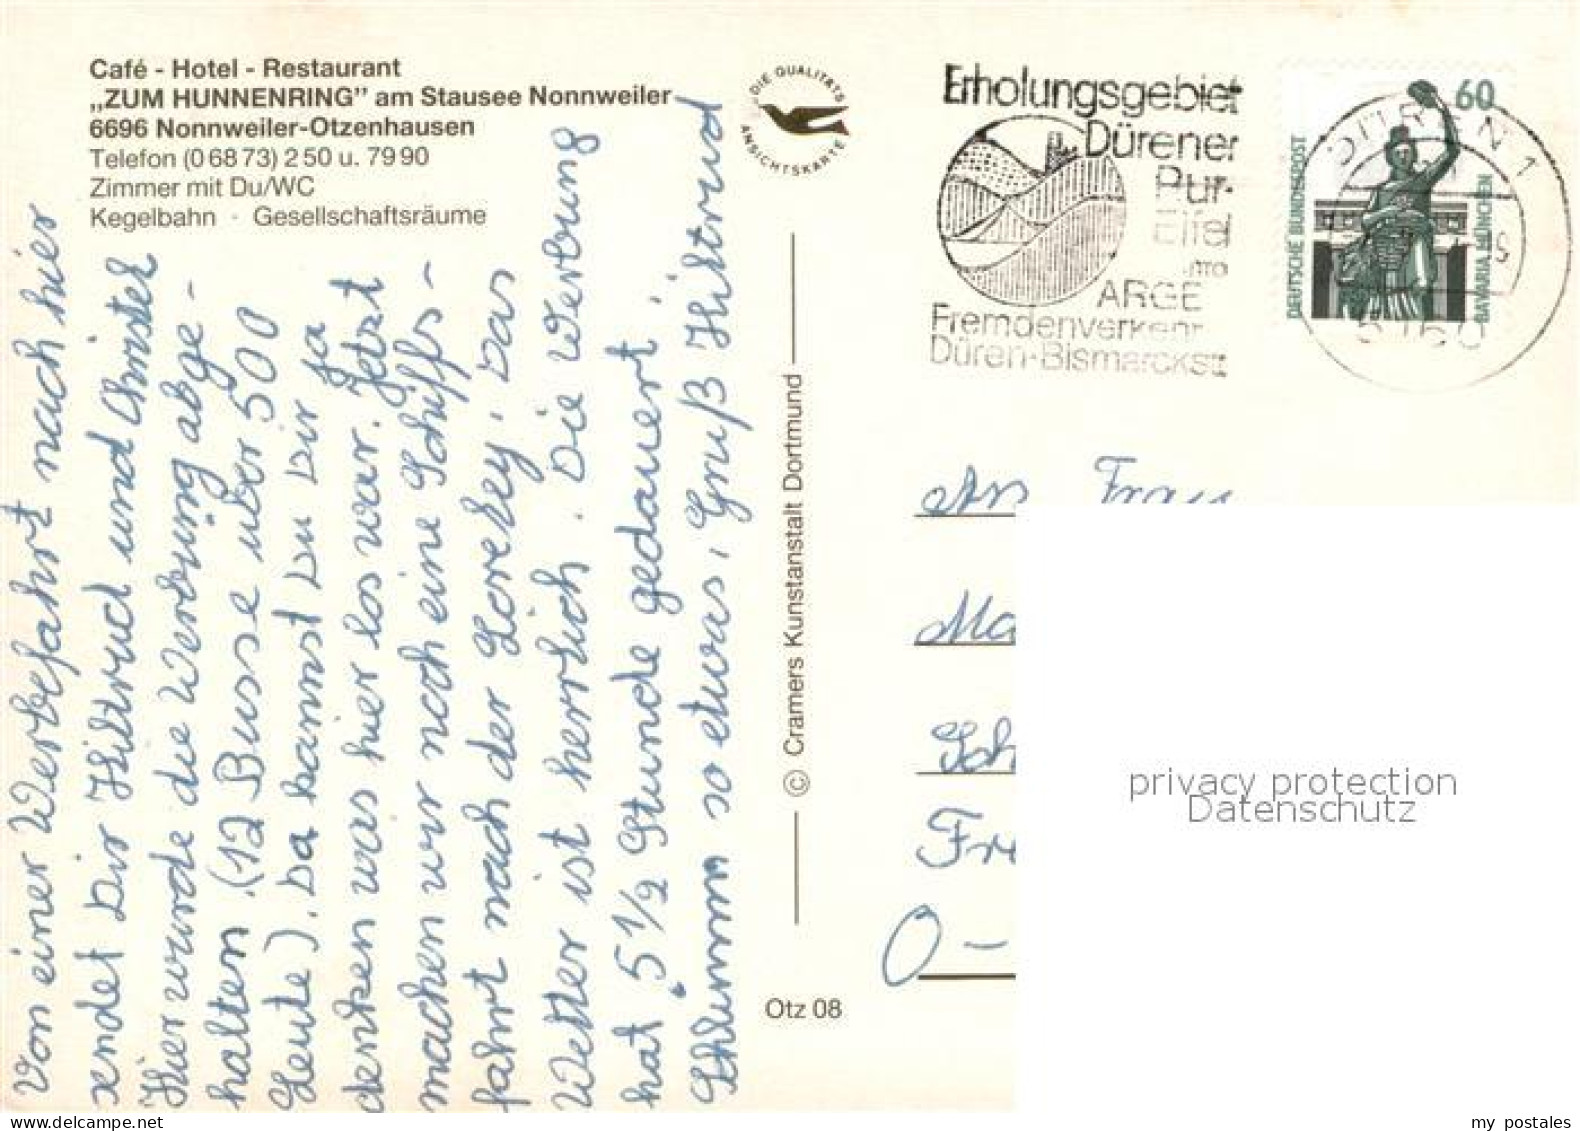 Café - Hotel - Restaurant
„ZUM HUNNENRING” am Stausee Nonnweiler
6696 Nonnweiler-Otzenhausen
Telefon (0 68 73) 2 50 u. 79 90
Zimmer mit Du/WC
Kegelbahn · Gesellschaftsräume
DIE QUALITÄTS
ANSICHTSKARTE
Von einer Werbefahrt nach hier
sendet Dir Hiltrud und Christel
Hier wurde die Werbung abge-
halten. (12 Busse über 500
Leute). Da kannst Du Dir ja
denken was hier los war. Jetzt
machen wir noch eine Schiffs-
fahrt nach der Loreley. Das
Wetter ist herrlich. Die Werbung
hat 5 1/2 Stunde gedauert.
Schlimm so etwas, Gruß Hiltrud
© Cramers Kunstanstalt Dortmund
Otz 08
Erholungsgebiet
Dürener
Rur-
Eifel
ARGE
Fremdenverkehr
Düren-Bismarckstr
60
DEUTSCHE BUNDESPOST
BAVARIA MÜNCHEN
DÜREN 1
5160
An Frau
Ma
Sch
Fre
O-
privacy protection
Datenschutz
www.delcampe.net
my postales